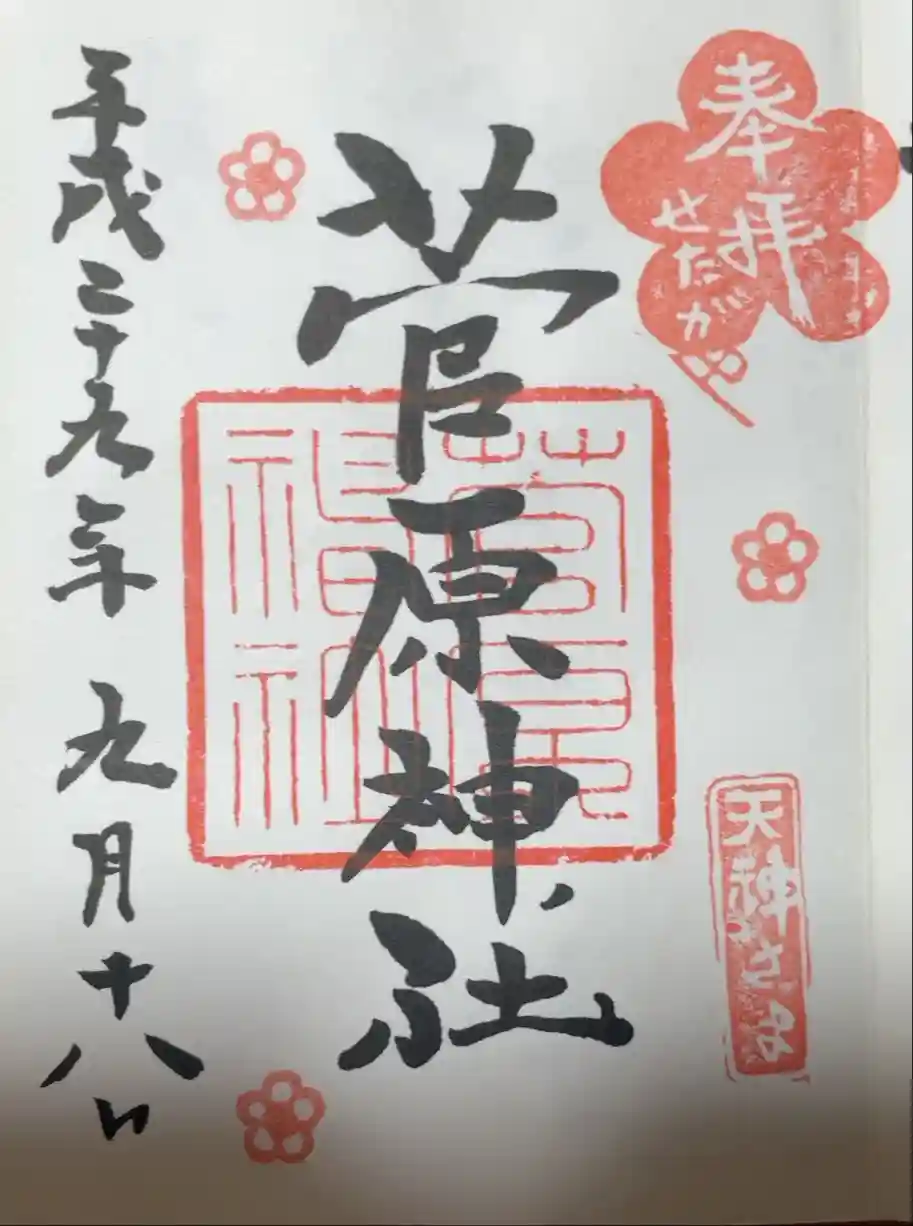 奉拝
せたがや
天神さま
菅原神社
菅原
神社
平成二十九年 九月十八日